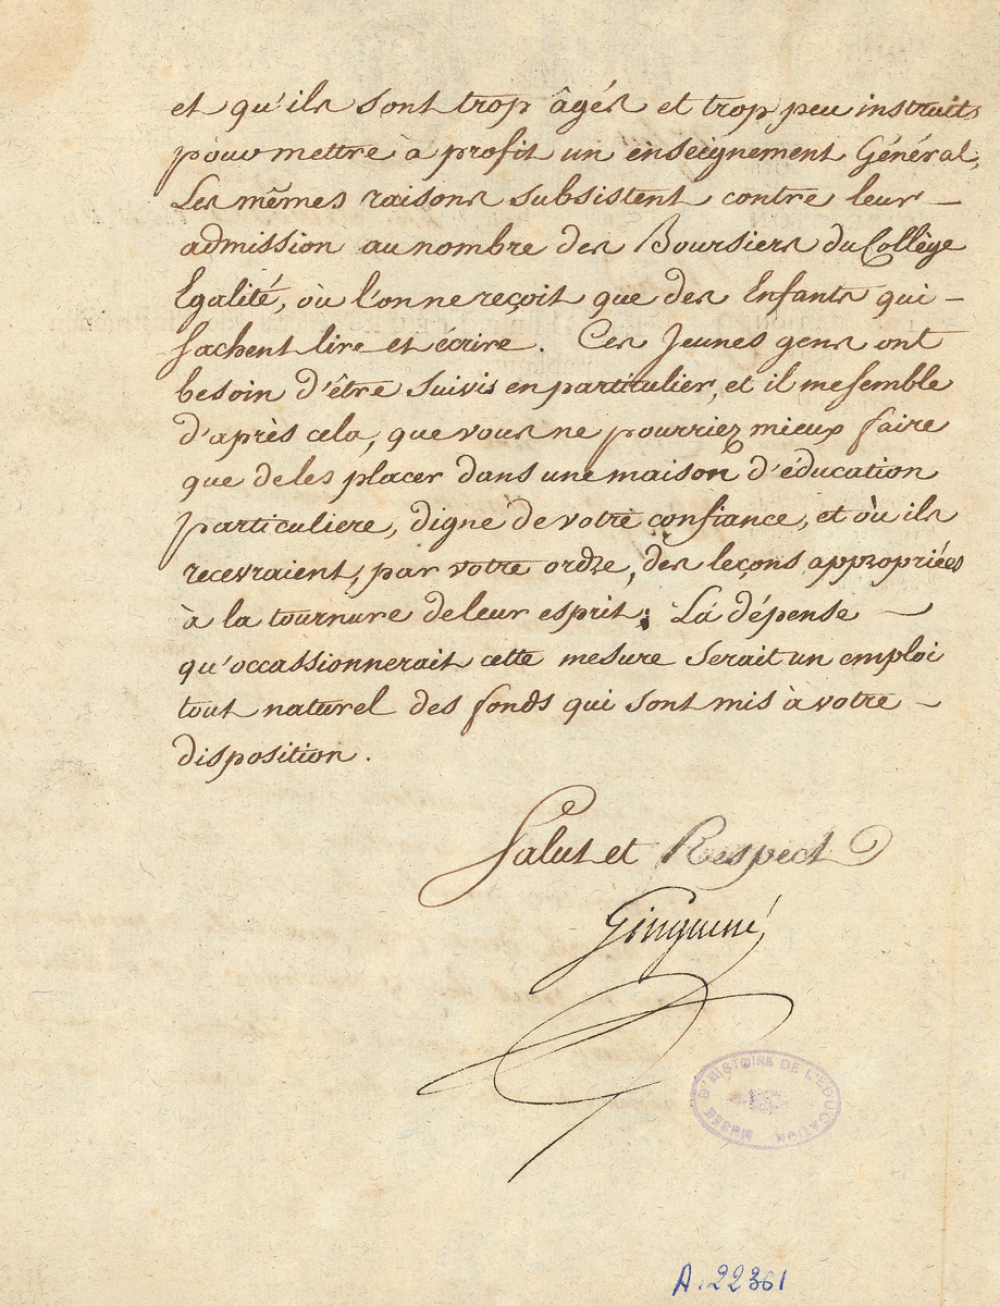 et qu'ils sont trop âgés et trop peu instruits
pour mettre à profit un enseignement Général,
Les mêmes raisons subsistent contre leur –
admission au nombre des Boursiers du Collège
Egalité, où l'on ne reçoit que des Enfants qui –
sachent lire et écrire. Ces jeunes gens ont
besoin d'être suivis en particulier, et il me semble
d'après cela, que vous ne pourriez mieux faire
que de les placer dans une maison d'éducation
particuliere, digne de votre confiance, et où ils
recevraient, par votre ordre, des leçons appropriées
à la tournure de leur esprit; La dépense –
qu'occassionnerait cette mesure serait un emploi
tout naturel des fonds qui sont mis à votre –
disposition.
Salut et Respect
Ginguené
MUSEE D'HISTOIRE DE L'EDUCATION
A. 22361